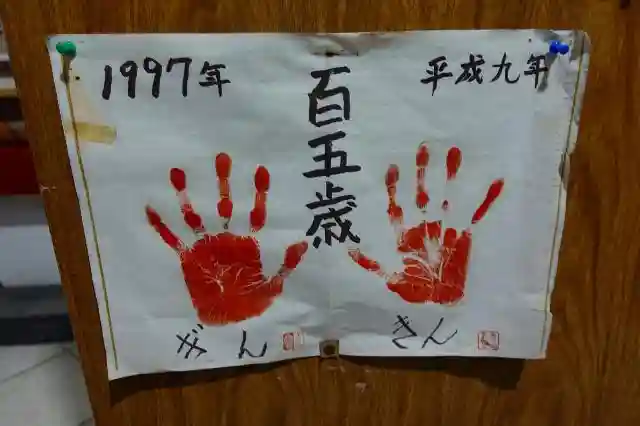 1997年
平成九年
百五歳
ぎん
きん